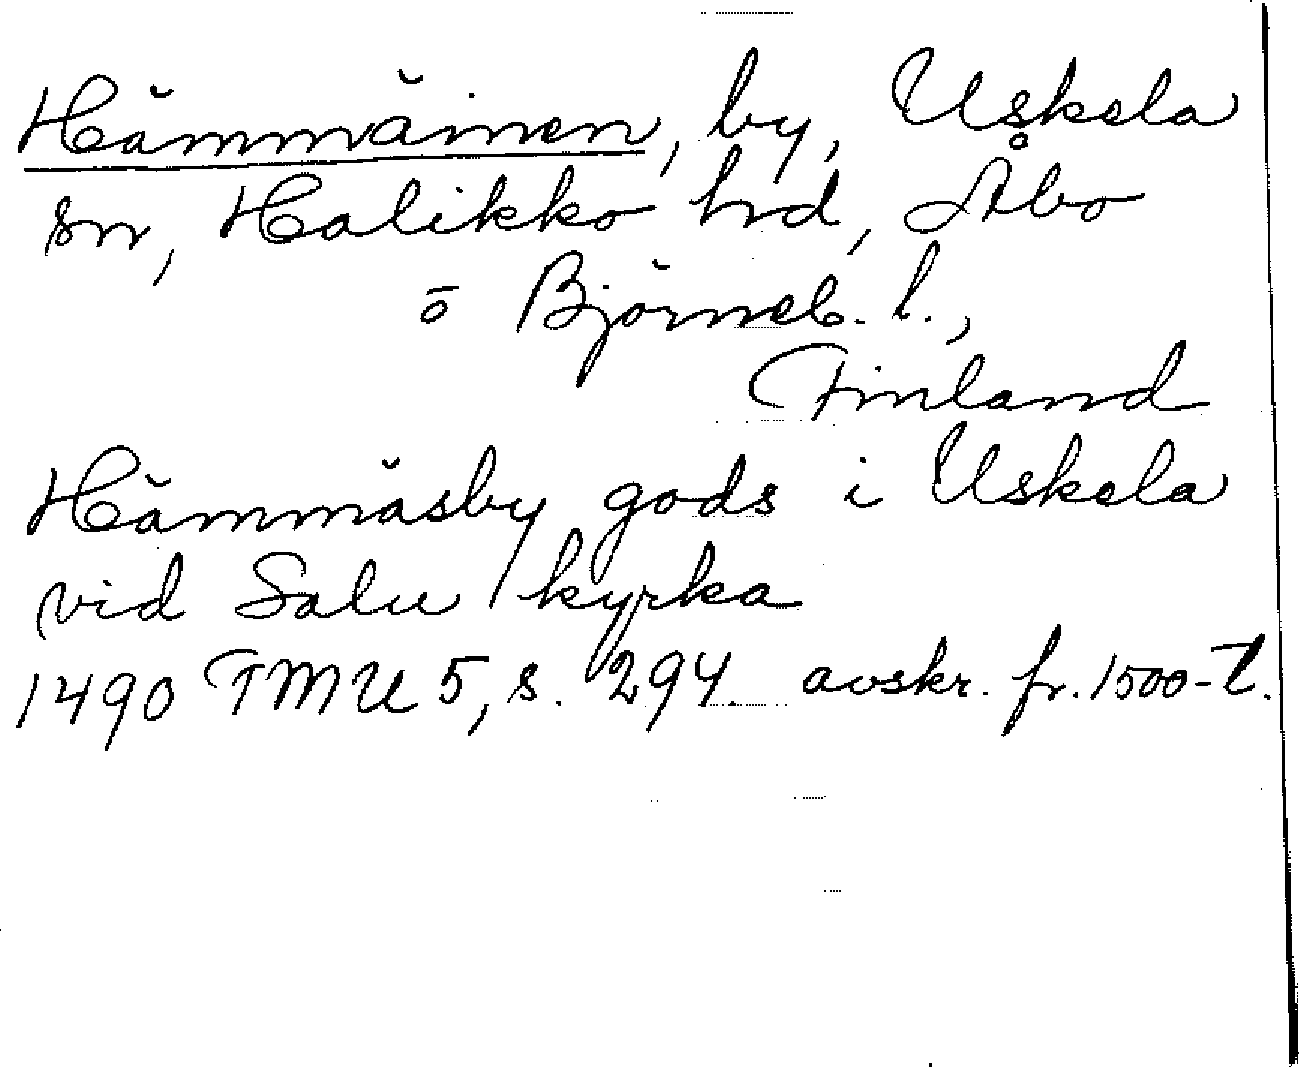 Hämmäinen, by, Uskela
sn, Halikko hrd, Åbo
o Björneb. l.,
Finland
Hämmäsby gods i Uskela
vid Salu kyrka
1490 FMU 5, s. 294. avskr. fr. 1500-t.